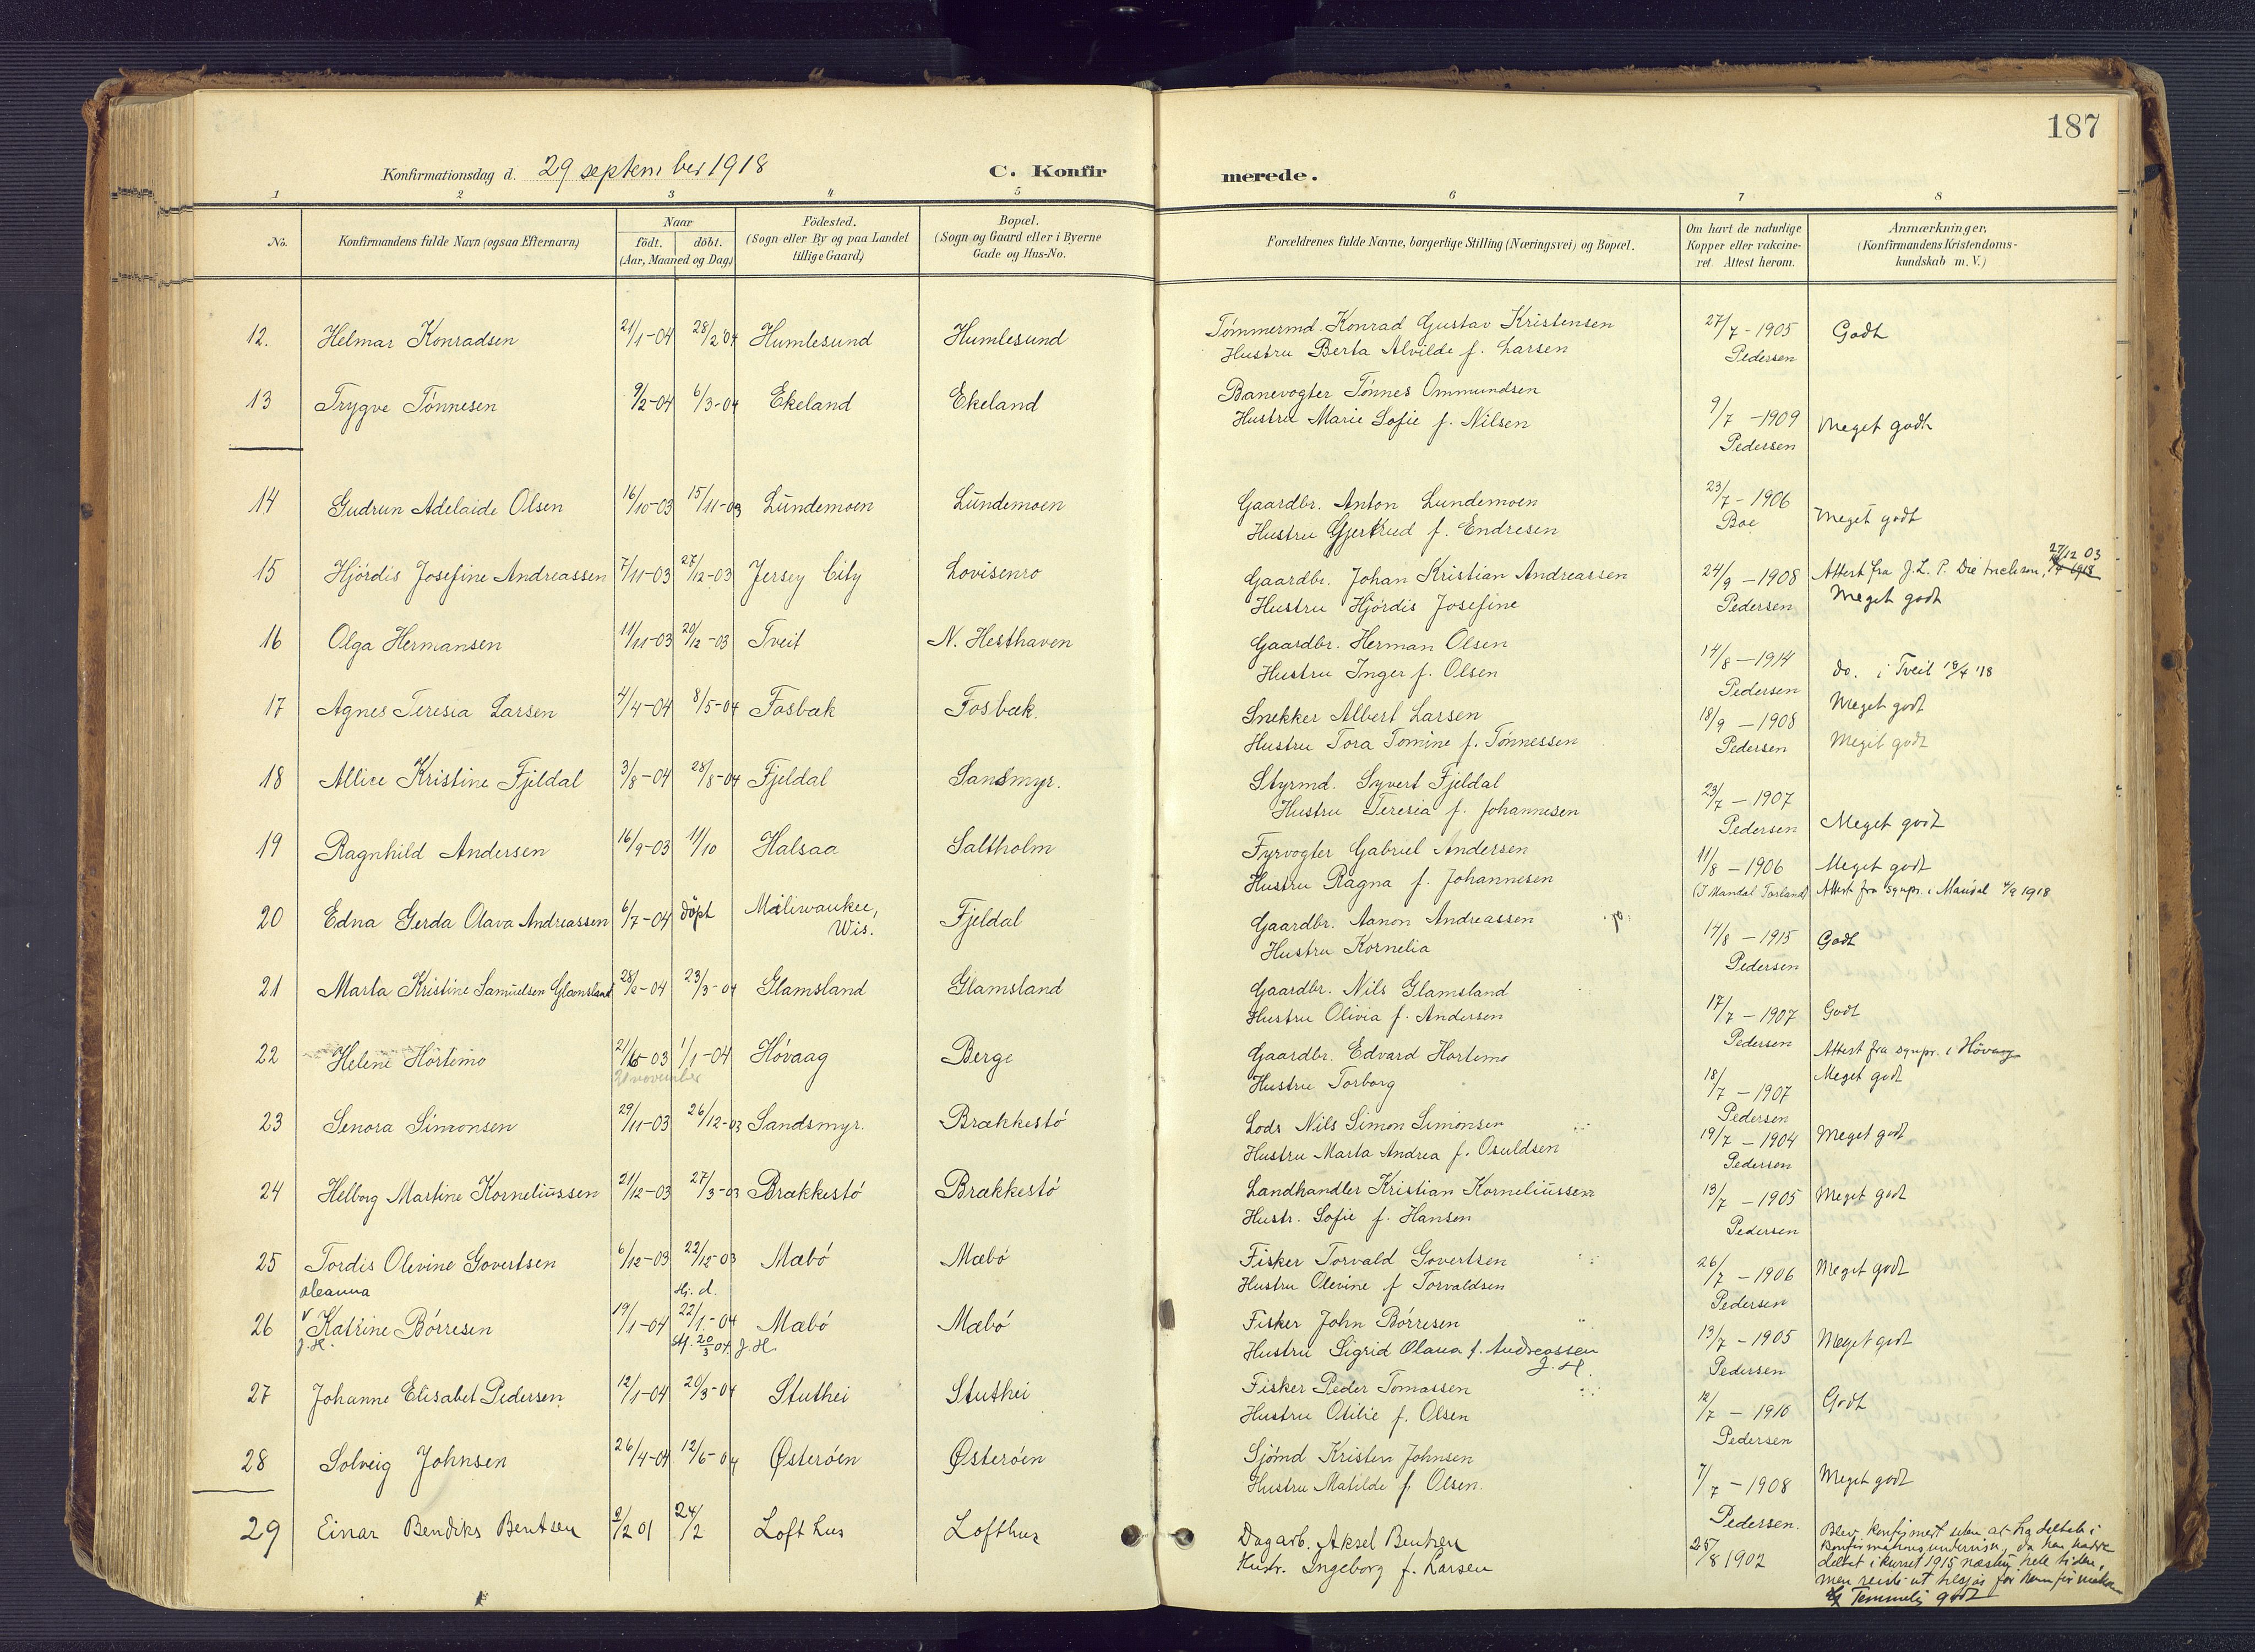 187
Konfirmationsdag d. 29 september 1918
C. Konfirmerede.
1 2 3 4 5 6 7 8
No.
Konfirmandens fulde Navn (ogsaa Efternavn)
Naar
födt. döbt.
(Aar, Maaned og Dag)
Födested.
(Sogn eller By og paa Landet
tillige Gaard)
Bopæl.
(Sogn og Gaard eller i Byerne
Gade og Hus-No.
Forældrenes fulde Navne, borgerlige Stilling (Næringsvei) og Bopæl.
Om havt de naturlige
Kopper eller vakcine-
ret. Attest herom.
Anmærkninger,
(Konfirmandens Kristendoms-
kundskab m. V.)
12. Helmar Konradsen 21/1-04 28/2 04 Humlesund Humlesund
Tömmermd. Konrad Gustav Kristensen 27/7-1905 Godt
Hustru Berta Alvilde f. Larsen Pedersen
13 Trygve Tönnesen 9/2-04 6/3-04 Ekeland Ekeland
Banevogter Tönnes Ommundsen 9/7-1909 Meget godt
Hustru Marie Sofie f. Nilsen Pedersen
14 Gudrun Adelaide Olsen 16/10-03 15/11-03 Lundemoen Lundemoen
Gaardbr. Anton Lundemoen 23/7-1906 Meget godt
Hustru Gjertrud f. Endresen Boe
15 Hjördis Josefine Andreassen 7/11-03 27/12-03 Jersey City Lovisenro
Gaardbr. Johan Kristian Andreassen 24/9-1908 Attest fra J. L. P. 27/12 03
Hustru Hjördis Josefine Pedersen Meget godt
16 Olga Hermansen 11/11-03 20/12-03 Tveit N. Hesthaven
Gaardbr. Herman Olsen 14/8-1914 do. i Tveit 18/4 '18
Hustru Inger f. Olsen Pedersen Meget godt
17 Agnes Teresia Larsen 4/4-04 8/5-04 Fosbæk Fosbæk.
Snekker Albert Larsen 18/9-1908 Meget godt
Hustru Tora Tomine f. Tönnessen Pedersen
18 Allice Kristine Fjeldal 3/8-04 28/8-04 Fjeldal Sandsmyr.
Styrmd. Syvert Fjeldal 23/7-1907 Meget godt
Hustru Teresia f. Johannesen Pedersen
19 Ragnhild Andersen 16/9-03 11/10 Halsaa Saltholm
Fyrvogter Gabriel Andersen 11/8-1906 Meget godt
Hustru Ragna f. Johannesen (I Mandal Torland) Attest fra sgnpr. i Mandal 4/9 1918
20 Edna Gerda Olava Andreassen 6/7-04 döpt Miliwaukee, Wis. Fjeldal
Gaardbr. Aanon Andreassen 14/8-1915 Godt
Hustru Kornelia Pedersen
21 Marta Kristine Samuelsen Glamsland 28/2-04 23/3-04 Glamsland Glamsland
Gaardbr. Nils Glamsland 17/7-1907 Godt
Hustru Olivia f. Andersen Pedersen
22 Helene Hortemo 03 1/1-04 Hövaag Berge
21 november
Gaardbr. Edvard Hortemo 18/7-1907 Attest fra sgnpr. i Hövaag
Hustru Torborg Pedersen Meget godt
23 Senora Simonsen 29/11-03 26/12-03 Sandsmyr. Brækkestö
Lods Nils Simon Simonsen 19/7-1904 Meget godt
Hustru Marta Andrea f. Osuldsen Pedersen
24 Helborg Martine Korneliussen 21/12-03 27/3-03 Brækkestö Brækkestö
Landhandler Kristian Korneliussen 13/7-1905 Meget godt
Hustr. Sofie f. Hansen Pedersen
25 Tordis Olevine Govertsen 6/12-03 22/12-03 Mæbö Mæbö
Fisker Torvald Govertsen 26/7-1906 Meget godt
Hustru Olevine f Torvaldsen Pedersen
Oleanna Hj. d.
26 Katrine Börresen 19/1-04 22/1-04 Mæbö Mæbö
J. H. 20/3 04. J. H.
Fisker John Börresen 13/7-1905 Meget godt
Hustru Sigrid Olava f. Andreassen Pedersen
J. H.
27 Johanne Elisabet Pedersen 12/1-04 20/3-04 Stuthei Stuthei
Fisker Peder Tomassen 12/7-1910 Godt
Hustru Otilie f. Olsen Pedersen
28 Solveig Johnsen 26/4-04 12/6-04 Østeröen Østeröen
Sjömd Kristen Johnsen 7/7-1908 Meget godt
Hustru Matilde f. Olsen. Pedersen.
29 Einar Bendiks Bentsen 2/2 01 24/2 Lofthus Lofthus
Dagarb. Aksel Bentsen 25/8 1902
Hustr. Ingeborg f. Larsen
Blev konfirmert uten at ha deltat i
Konfirmationsundervisn., da han hadde
deltat i kurset 1915 næsten hele tiden,
men reiste ut tilsjös för konfirmationen
Temmelig godt